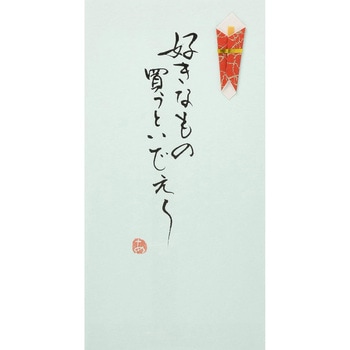 好きなもの
買うといでえ〜